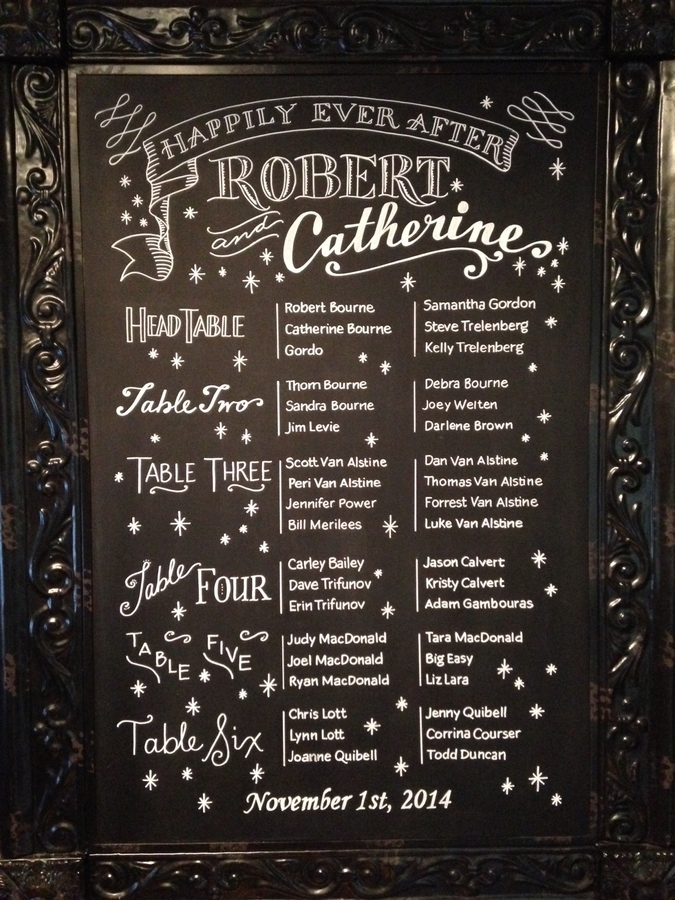 HAPPILY EVER AFTER
ROBERT
and Catherine
HEAD TABLE
Robert Bourne
Catherine Bourne
Gordo
Samantha Gordon
Steve Trelenberg
Kelly Trelenberg
Table Two
Thom Bourne
Sandra Bourne
Jim Levie
Debra Bourne
Joey Welten
Darlene Brown
TABLE THREE
Scott Van Alstine
Peri Van Alstine
Jennifer Power
Bill Merilees
Dan Van Alstine
Thomas Van Alstine
Forrest Van Alstine
Luke Van Alstine
Table FOUR
Carley Bailey
Dave Trifunov
Erin Trifunov
Jason Calvert
Kristy Calvert
Adam Gambouras
TABLE FIVE
Judy MacDonald
Joel MacDonald
Ryan MacDonald
Tara MacDonald
Big Easy
Liz Lara
Table Six
Chris Lott
Lynn Lott
Joanne Quibell
Jenny Quibell
Corrina Courser
Todd Duncan
November 1st, 2014